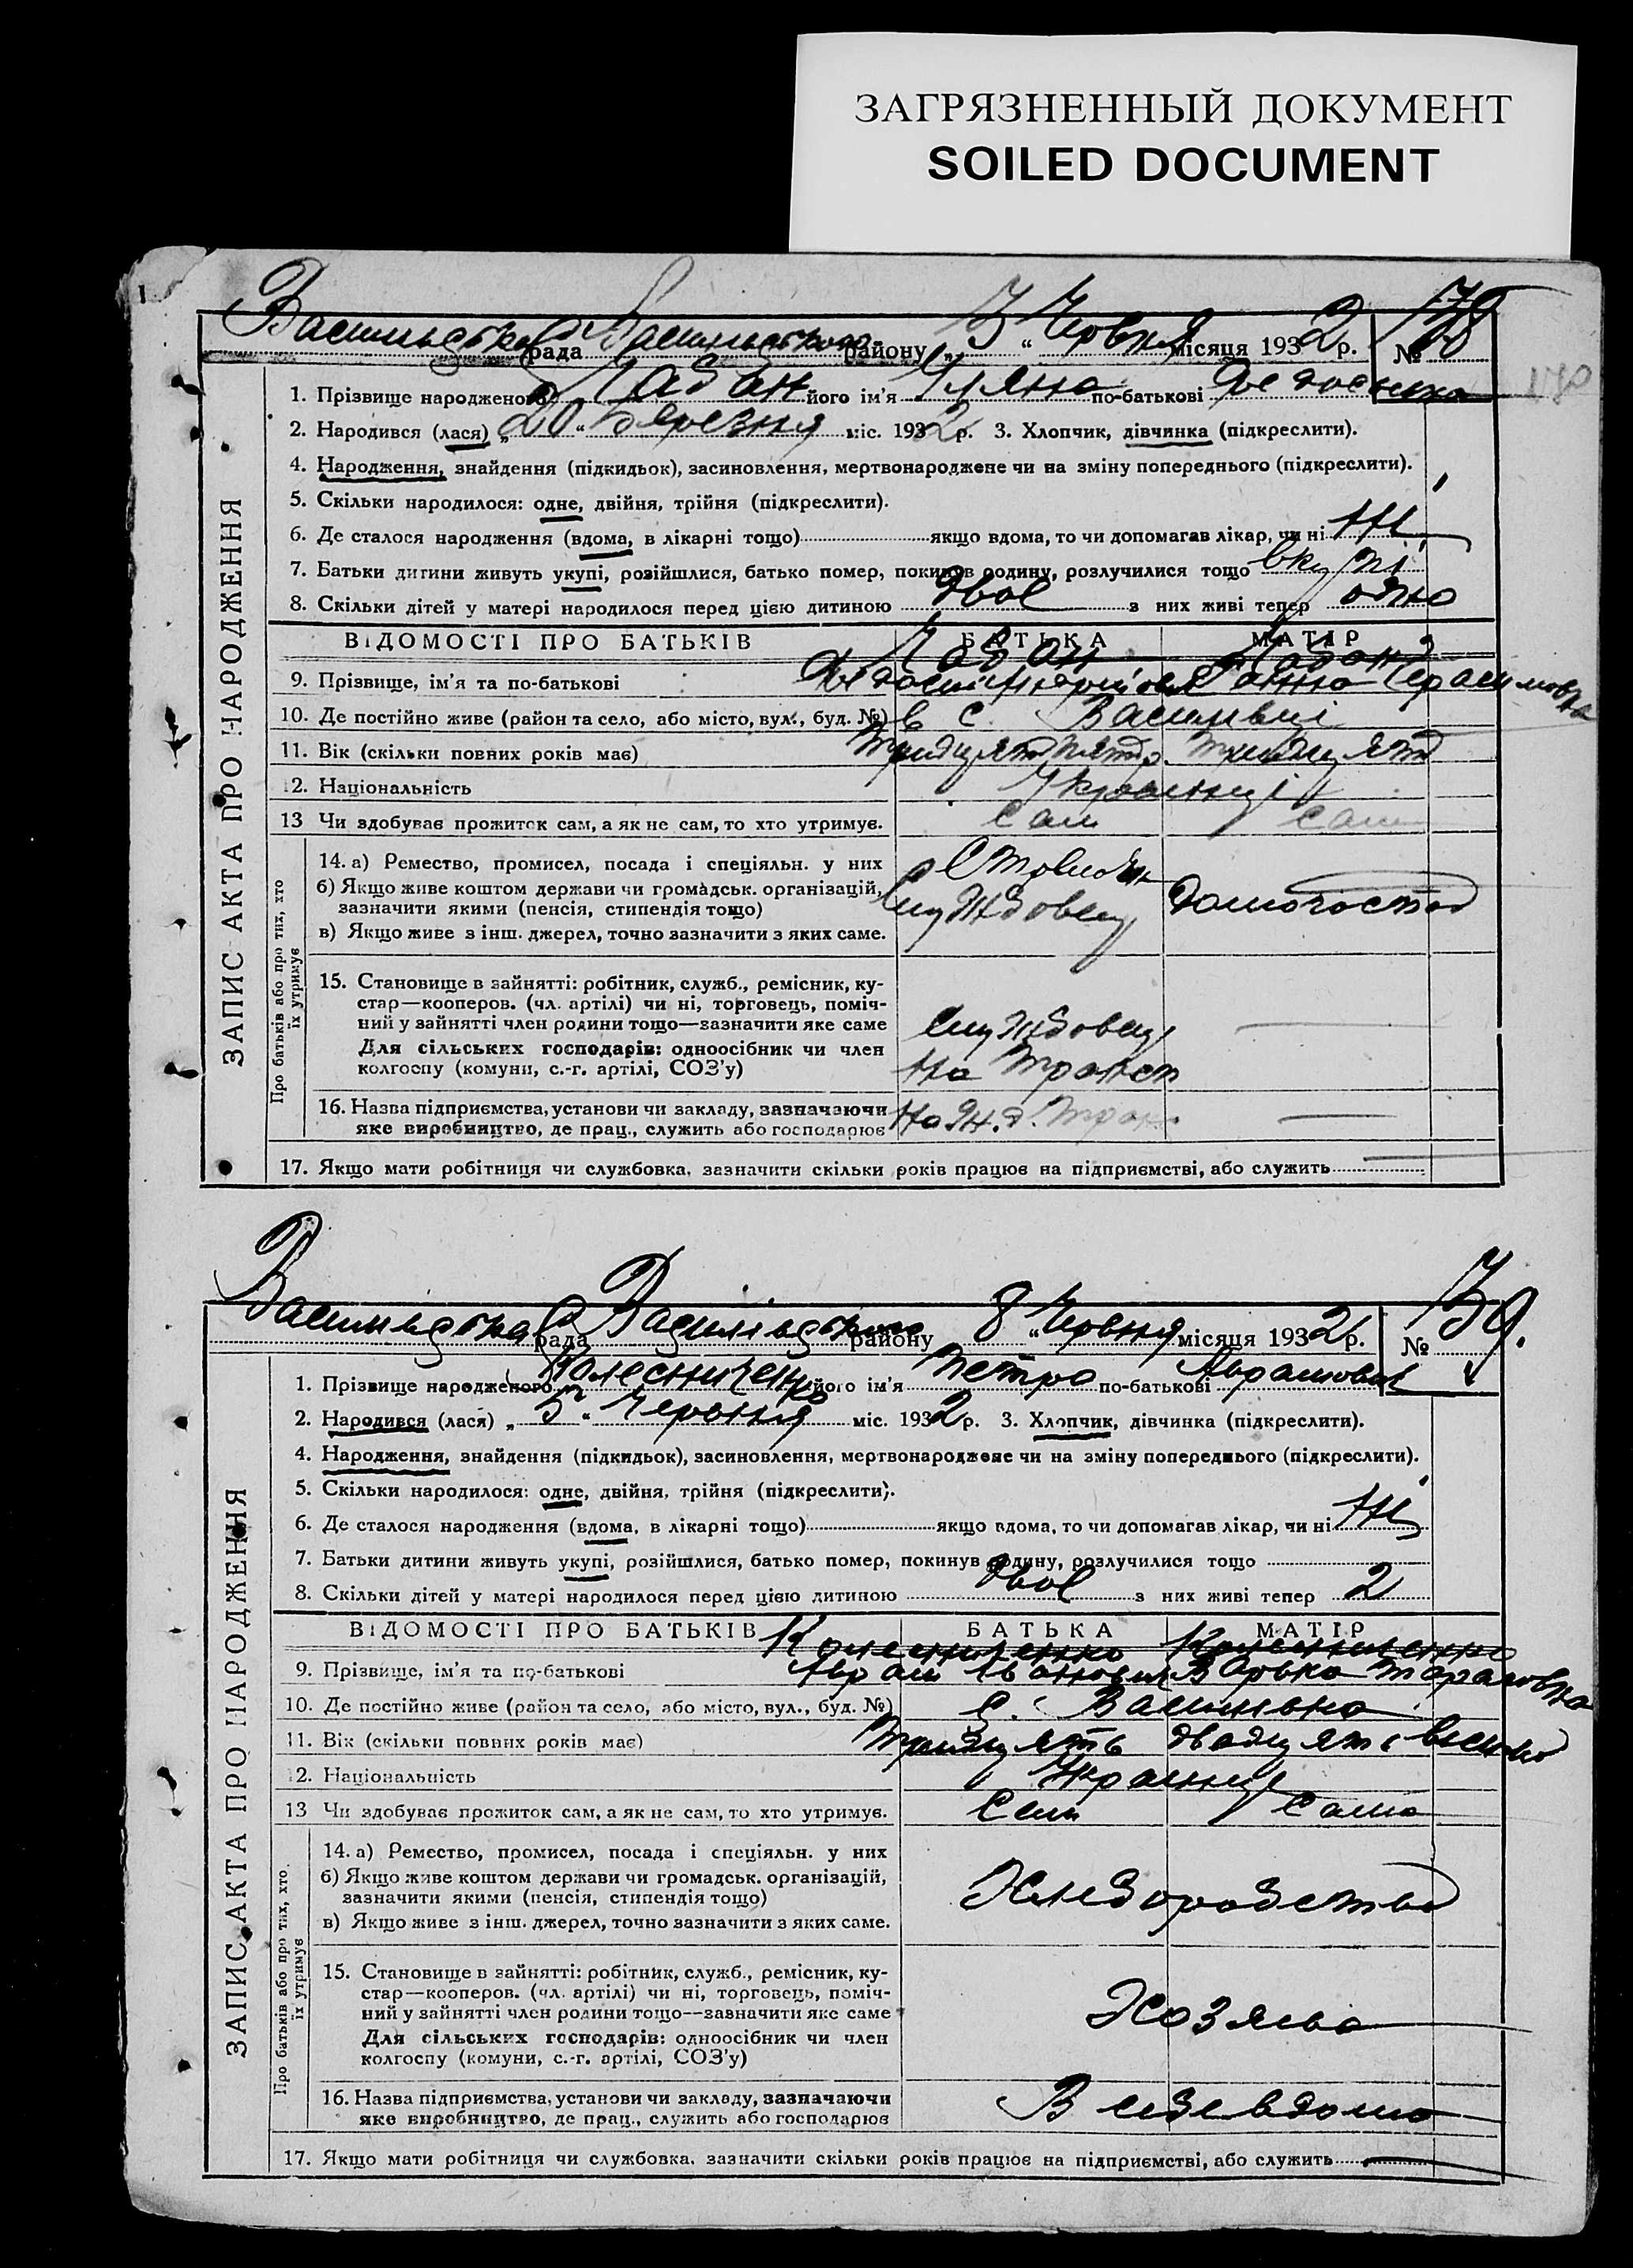 ЗАГРЯЗНЕННЫЙ ДОКУМЕНТ
SOILED DOCUMENT
Васильевська рада Васильевського району „3“ Червня місяця 1932 р. №
1. Прізвище народженого Чабан його ім'я Уляна по-батькові
2. Народився (лася) „20“ березня міс. 1932 р. 3. Хлопчик, дівчинка (підкреслити).
4. Народження, знайдення (підкидьок), засиновлення, мертвонароджене чи на зміну попереднього (підкреслити).
5. Скільки народилося: одне, двійня, трійня (підкреслити).
6. Де сталося народження (вдома, в лікарні тощо) якщо вдома, то чи допомагав лікар, чи ні Ні
7. Батьки дитини живуть укупі, розійшлися, батько помер, покинув родину, розлучилися тощо вкупі
8. Скільки дітей у матері народилося перед цією дитиною двоє з них живі тепер одно
ВІДОМОСТІ ПРО БАТЬКІВ БАТЬКА МАТІР
Чабан Чабан
9. Прізвище, ім'я та по-батькові Ганна Герасимовна
10. Де постійно живе (район та село, або місто, вул., буд. №) в с. Васильвці
11. Вік (скільки повних років має) тридцять пять тридцять
12. Національність Українці
13 Чи здобував прожиток сам, а як не сам, то хто утримує. Сам Сам
14. а) Ремество, промисел, посада і спеціяльн. у них
б) Якщо живе коштом держави чи громадськ. організацій, зазначити якими (пенсія, стипендія тощо) Службовец домогоства
в) Якщо живе з інш. джерел, точно зазначити з яких саме.
15. Становище в зайнятті: робітник, служб., ремісник, ку-
стар—кооперов. (чл. артілі) чи ні, торговець, поміч-
ний у зайнятті член родини тощо—зазначити яке саме Службовец
Для сільських господарів: одноосібник чи член
колгоспу (комуни, с.-г. артілі, СОЗ'у) На трансп
16. Назва підприємства, установи чи закладу, зазначаючи На ж.д. тран.
яке виробництво, де прац., служить або господарює
17. Якщо мати робітниця чи службовка, зазначити скільки років працює на підприємстві, або служить
ЗАПИС АКТА ПРО НАРОДЖЕННЯ
Про батьків або про тих, хто
їх утримує
Васильевська рада Васильевського району 8 „Червня місяця 1932 р. № 79.
1. Прізвище народженого Колесниченко його ім'я Петро по-батькові Аврамович
2. Народився (лася) „5“ Червня міс. 1932 р. 3. Хлопчик, дівчинка (підкреслити).
4. Народження, знайдення (підкидьок), засиновлення, мертвонароджене чи на зміну попереднього (підкреслити).
5. Скільки народилося: одне, двійня, трійня (підкреслити).
6. Де сталося народження (вдома, в лікарні тощо) якщо вдома, то чи допомагав лікар, чи ні Ні
7. Батьки дитини живуть укупі, розійшлися, батько помер, покинув родину, розлучилися тощо
8. Скільки дітей у матері народилося перед цією дитиною двоє з них живі тепер 2
ВІДОМОСТІ ПРО БАТЬКІВ БАТЬКА МАТІР
Колесниченко Колесниченко
9. Прізвище, ім'я та по-батькові Аврам Іванович Варька Тарасовна
10. Де постійно живе (район та село, або місто, вул., буд. №) с. Васильвка
11. Вік (скільки повних років має) тридцять двадцять вісім
12. Національність Українці
13 Чи здобував прожиток сам, а як не сам, то хто утримує. Сам Сама
14. а) Ремество, промисел, посада і спеціяльн. у них
б) Якщо живе коштом держави чи громадськ. організацій, Хлебородства
зазначити якими (пенсія, стипендія тощо)
в) Якщо живе з інш. джерел, точно зазначити з яких саме.
15. Становище в зайнятті: робітник, служб., ремісник, ку-
стар—кооперов. (чл. артілі) чи ні, торговець, поміч-
ний у зайнятті член родини тощо—зазначити яке саме Хозяева
Для сільських господарів: одноосібник чи член
колгоспу (комуни, с.-г. артілі, СОЗ'у)
16. Назва підприємства, установи чи закладу, зазначаючи В себе вдома
яке виробництво, де прац., служить або господарює
17. Якщо мати робітниця чи службовка, зазначити скільки років працює на підприємстві, або служить
ЗАПИС АКТА ПРО НАРОДЖЕННЯ
Про батьків або про тих, хто
їх утримує